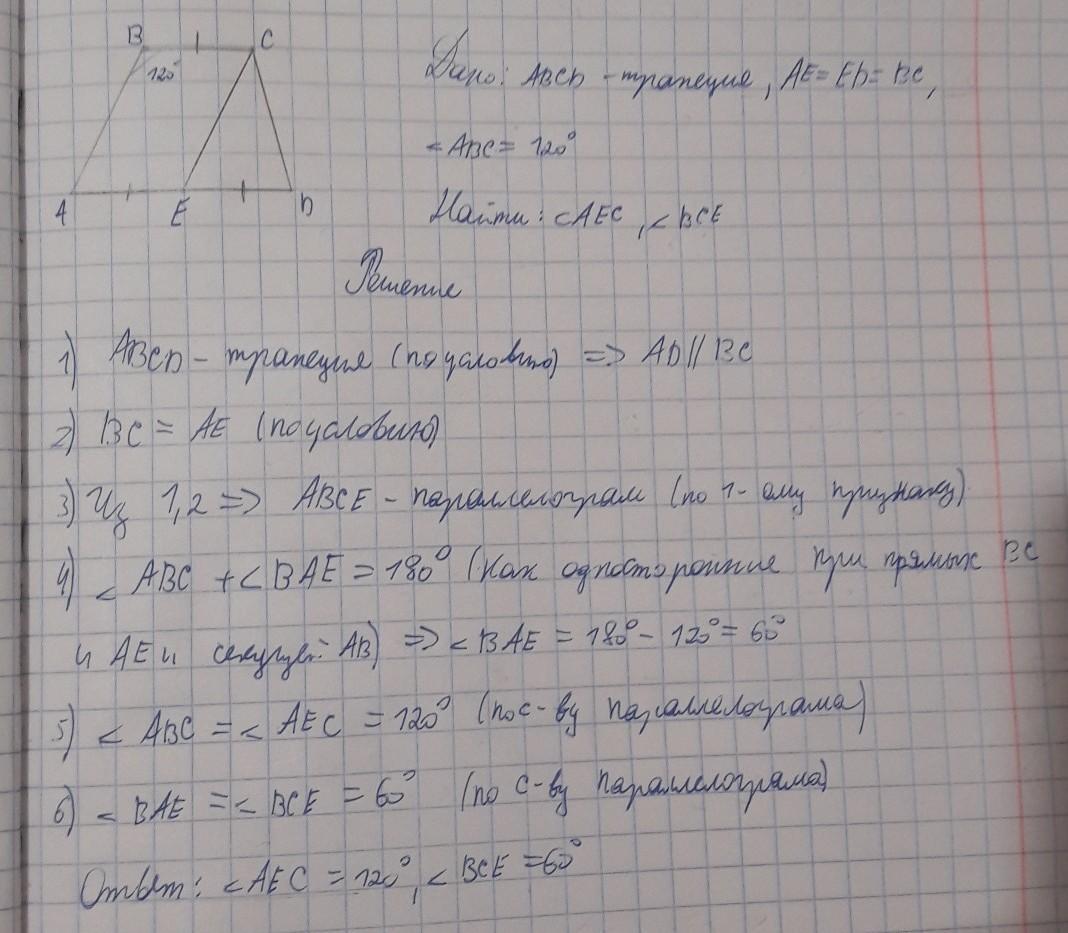 B C
120°
A E D
Дано: ABCD - трапеция, AE = ED = BC,
< ABC = 120°
Найти: < AEC, < BCE
Решение
1) ABCD - трапеция (по условию) => AD || BC
2) BC = AE (по условию)
3) Из 1,2 => ABCE - параллелограм (по 1-ому признаку)
4) < ABC + < BAE = 180° (как односторонние при прямых BC
и AE и секущей AB) => < BAE = 180° - 120° = 60°
5) < ABC = < AEC = 120° (по с-ву параллелограма)
6) < BAE = < BCE = 60° (по с-ву параллелограма)
Ответ: < AEC = 120°, < BCE = 60°